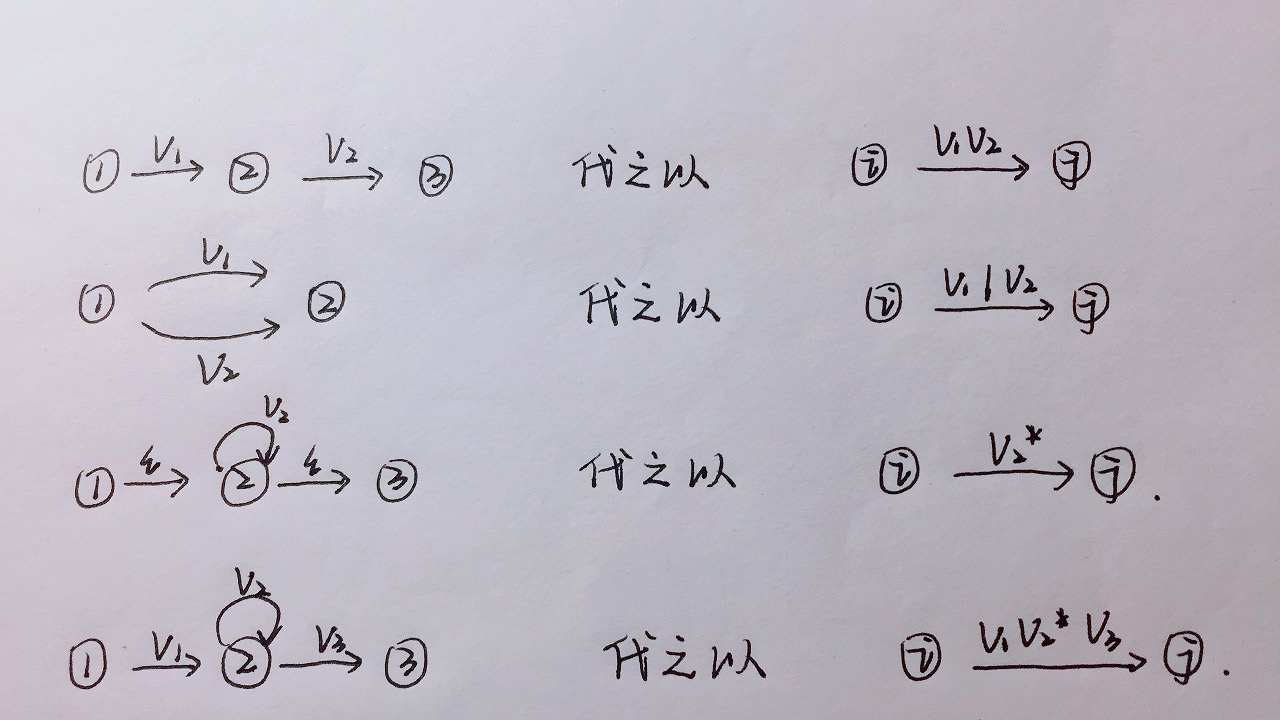 ① V₁ → ② V₂ → ③ 代之以 ⓘ V₁V₂ → ⓙ
① V₁ → ②
V₂ 代之以 ⓘ V₁|V₂ → ⓙ
① ε → ② V₂ ε → ③ 代之以 ⓘ V₂* → ⓙ.
① V₁ → ② V₂ V₃ → ③ 代之以 ⓘ V₁V₂*V₃ → ⓙ.